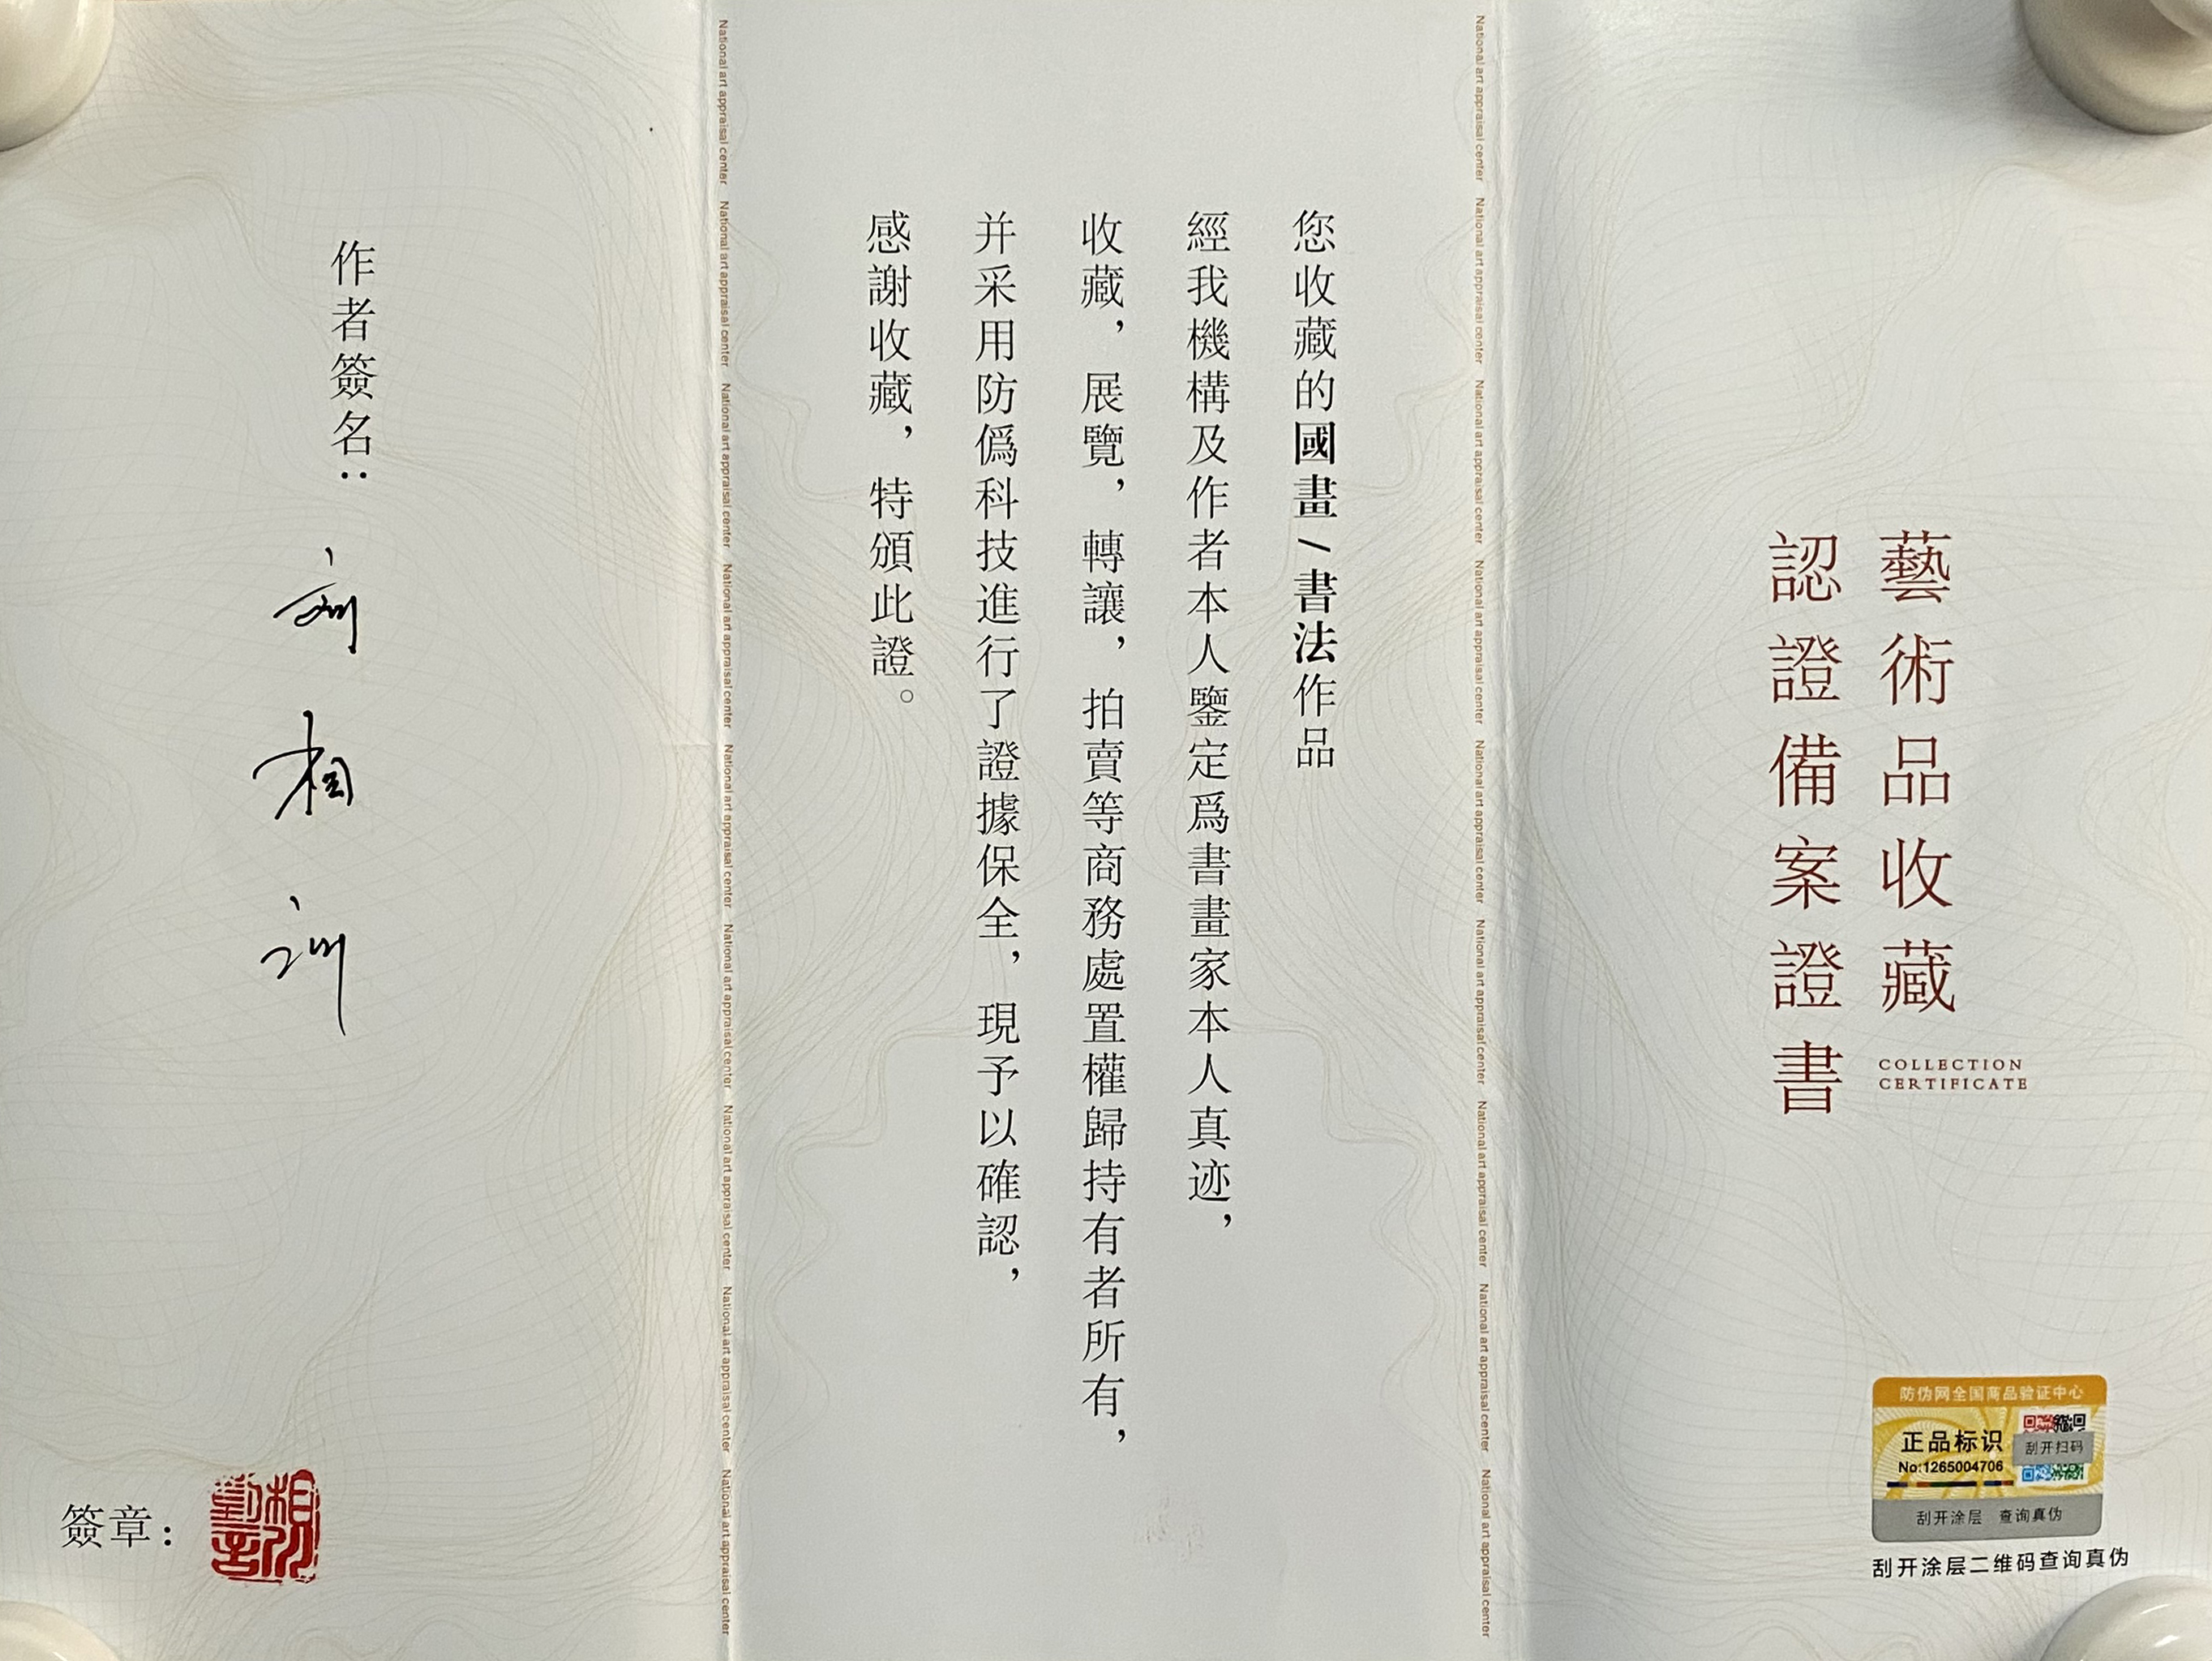 藝術品收藏
認證備案證書
COLLECTION
CERTIFICATE
防伪网全国商品验证中心
正品标识
No:1265004706
刮开扫码
刮开涂层 查询真伪
刮开涂层二维码查询真伪
National art appraisal center National art appraisal center National art appraisal center National art appraisal center National art appraisal center National art appraisal center National art appraisal center National art appraisal center National art appraisal center
您收藏的國畫/書法作品
經我機構及作者本人鑒定爲書畫家本人真迹，
收藏，展覽，轉讓，拍賣等商務處置權歸持有者所有，
并采用防僞科技進行了證據保全，現予以確認，
感謝收藏，特頒此證。
National art appraisal center National art appraisal center National art appraisal center National art appraisal center National art appraisal center National art appraisal center National art appraisal center National art appraisal center National art appraisal center
作者簽名：
相訓
簽章：